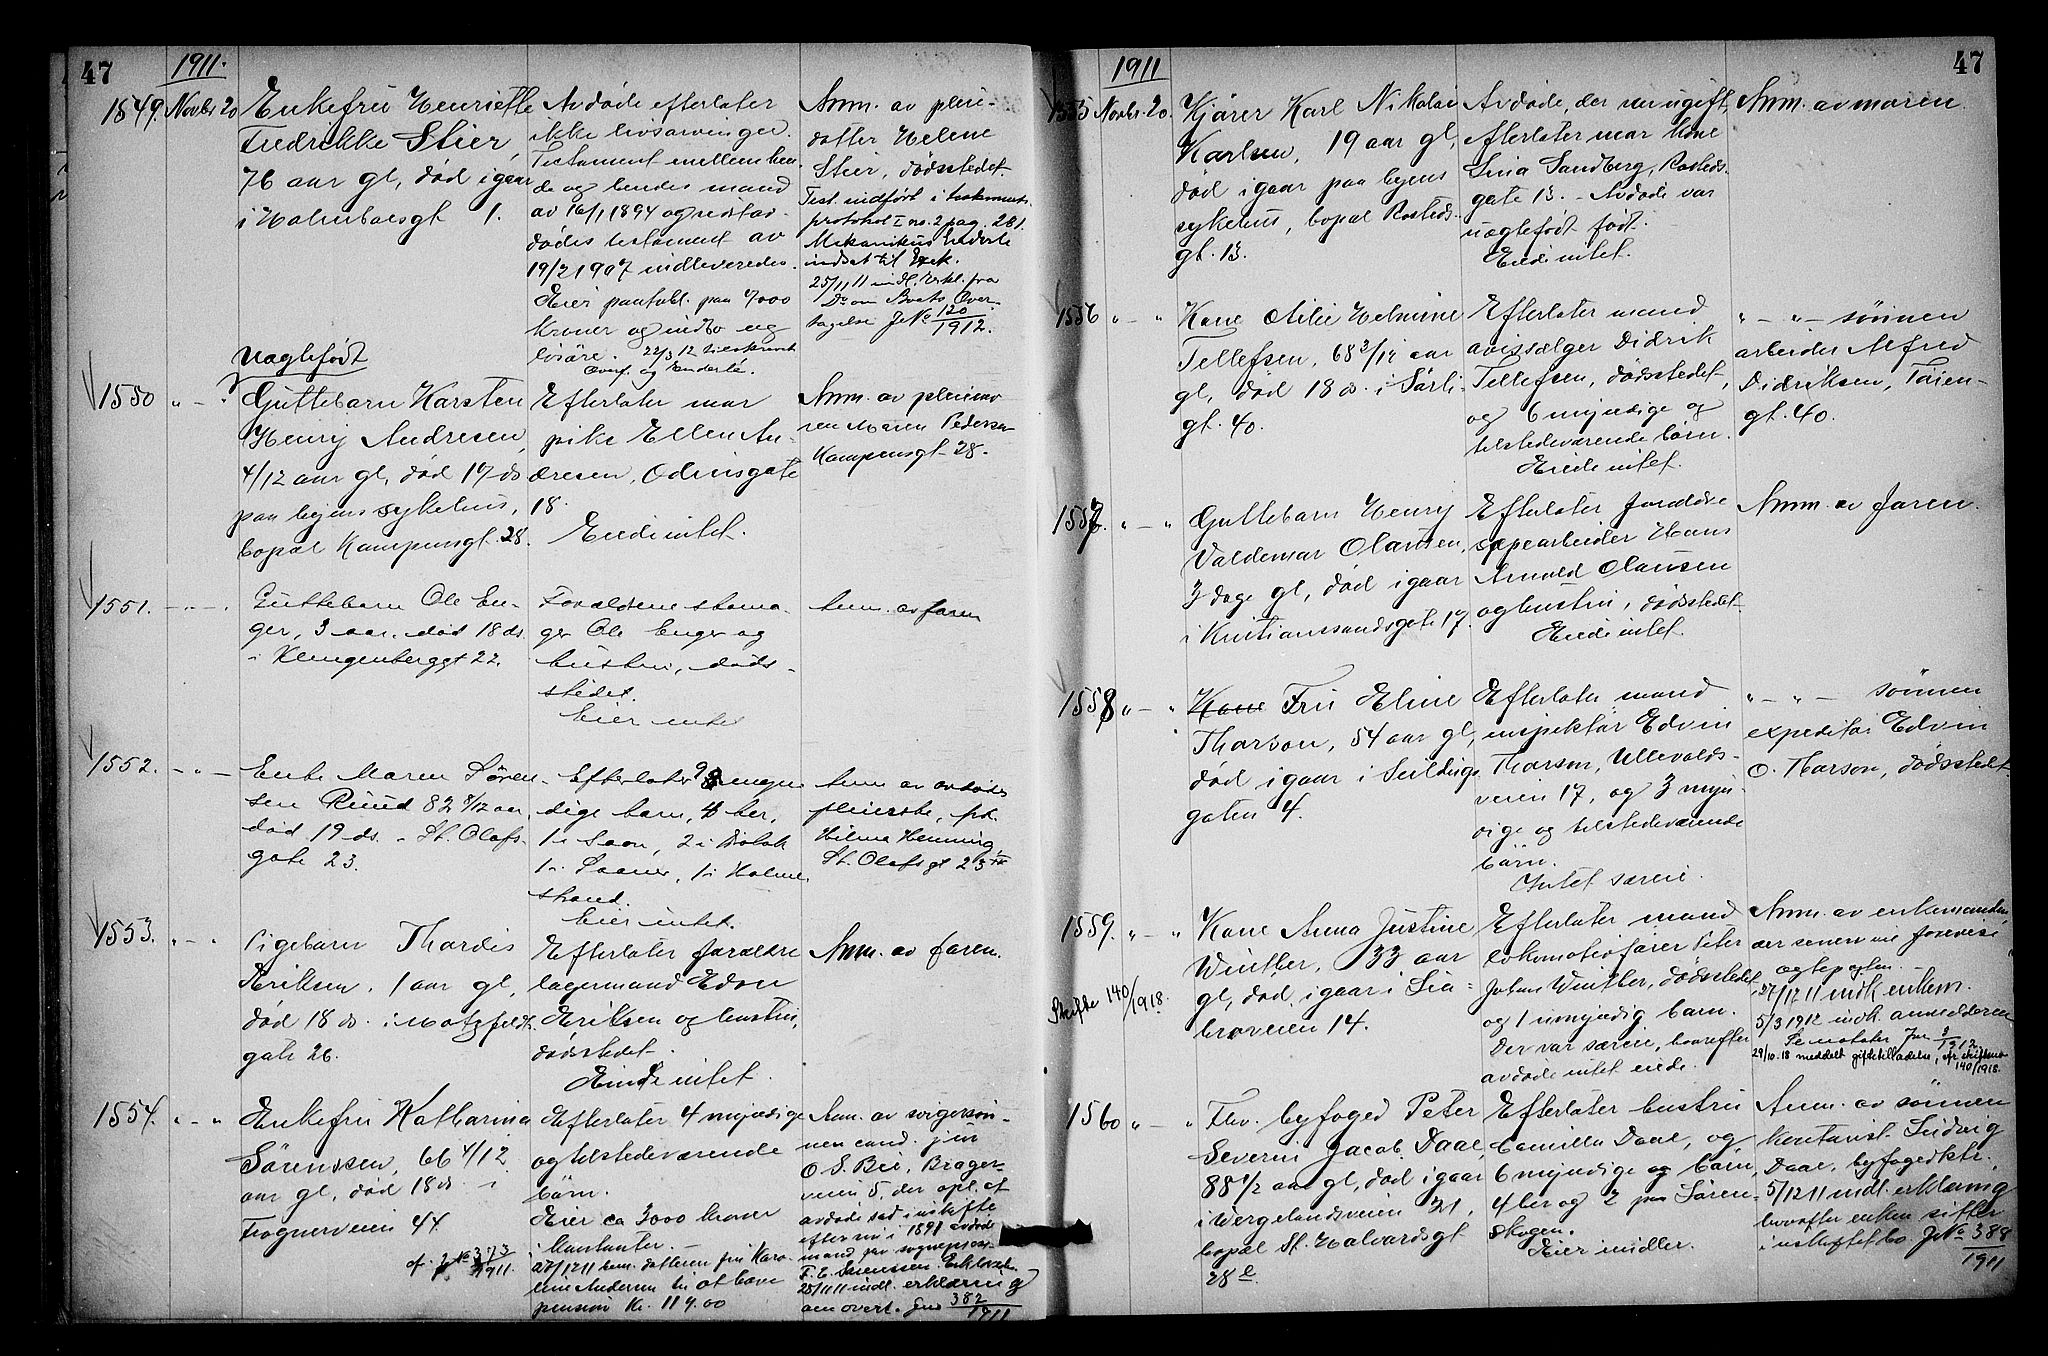 47
1911.
1549. Novbr 20
Enkefru Henriette
Fredrikke Stier,
76 aar gl, död igaar
i Holmboesgt 1.
Avdöde efterlater
ikke livsarvinger.
Testament mellem hen-
de og hendes mand
av 16/1 1894 og
dödes testament av
19/2 1907 indleveredes.
Eier paa 7000
kroner og indbo og
lösöre.
Anm. av pleie-
datter Helene
Stier, dödsstedet.
Test. indfört i testament-
protokol I no. 2 pag. 281.
indsat til
25/11 11 indl.
JNo 120/1912.
1550
Uegtefödt
Guttebarn Karsten
Henry Andresen,
4/12 aar gl, död 17 ds
paa byens sykehus,
bopæl Kampensgt. 28.
Efterlater mor
pike Ellen An-
dresen, Odinsgate
18.
Eiede intet.
Anm. av pleiemo-
ren Maren Pedersen
Kampensgt. 28.
1551.
Guttebarn Ole En-
ger, 3 aar, död 18 ds.
i Klingenberggt 22.
Forældrene skoma-
ger Ole Enger og
hustru, döds-
stedet.
Eier intet
Anm. av faren
1552.
Enke Maren Sören-
sen Ruud 82 8/12 aar,
död 19 ds. St. Olafs-
gate 23.
Efterlater 9 myn-
dige barn, 4 her,
1 i Saon, 2 i
1 i , 1 i Holme-
strand.
Eier intet.
Anm. av avdödes
pleierske, frk.
Hilma Henning,
St. Olafsgt 23
1553.
Pigebarn Thordis
Eriksen, 1 aar gl,
död 18 ds. i Motzfeldts-
gate 26.
Efterlater forældre
lagermand Edon
Eriksen og hustru,
dödsstedet.
Eiede intet.
Anm. av faren.
1554.
Enkefru Katharina
Sörenssen, 66 4/12
aar gl, död 18 ds. i
Frognerveien 44.
cf. JNo 373/1911.
Efterlater 4 myndige
og tilstedeværende
börn.
Eier ca 3000 kroner
i kontanter.
27/12 11 datteren fru Karo-
line Andersen
pension Kr. 117.00
Anm. av svigersön-
nen cand. jur
O. S. Bie, Brager-
veien 5, der opl. at
avdöde sad i uskifte
efter sin i 1891 avdöde
mand
F. E. Sörenssen.
25/11 11 indl. erklæring
om overt. 382/1911
47
1911
1555 Novbr. 20.
Kjörer Karl Nikolai
Karlsen, 19 aar gl,
död igaar paa byens
sykehus, bopæl Rosteds-
gt. 13.
Avdöde, der var ugift,
efterlater mor kone
Lina Sandberg, Rosteds-
gate 13. - Avdöde var
uegtefödt födt.
Eiede intet.
Anm. av moren.
1556 " - "
Kone Otilie Helmine
Tellefsen, 68 3/12 aar
gl, död 18 ds. i Sörli-
gt. 40.
Efterlater mand
avissælger Didrik
Tellefsen, dödsstedet,
og 6 myndige og
tilstedeværende börn.
Eiede intet.
" - " - sönnen
arbeider Alfred
Didriksen, Töien-
gt. 40.
1557. " - "
Guttebarn Henry
Valdemar Olausen,
3 dage gl, död igaar
i Kristianssandsgate 17.
Efterlater forældre
sæpearbeider Hans
Arnold Olausen
og hustru, dödsstedet.
Eiede intet.
Anm. av faren.
1558 " - "
Kone Fru Eline
Tharson, 54 aar gl,
död igaar i Sceldugs-
gaten 4.
Efterlater mand
inspektör Edvin
Tharson, Ullevolds-
veien 17, og 3 myn-
dige og tilstedeværende
börn.
Intet særeie.
" - " - sönnen
expeditör Edvin
O. Tharson, dödsstedet.
1559. " - "
Skifte 140/1918.
Kone Anna Justine
Winther, 33 aar
gl, död igaar i Lia-
broveien 14.
Efterlater mand
lokomotivförer Peter
Johan Winther, dödsstedet,
og 1 umyndig barn.
Der var særeie, hvorefter
avdöde intet eiede.
Anm. av enkemanden,
der senere vil forevise
egtepagten.
27/12 11 indk. enkem.
5/3 1912 indk. anmelderen
29/10.18 meddelt giftetilladelse, cfr skifteno
140/1918.
1560 " - "
Fhv. byfoged Peter
Severin Jacob Daae,
88 1/2 aar gl, död igaar
i Wergelandsveien 21,
bopæl St. Halvardsgt
28 e.
Efterlater hustru
Camilla Daae, og
6 myndige og börn,
4 her og 2 paa Sören-
skogen.
Eier midler.
Anm. av sönnen
kontorist Ludvig
Daae, byfogedktr.
5/12 11 indl. erklæring
hvorefter enken sitter
i uskiftet bo JNo 388/1911